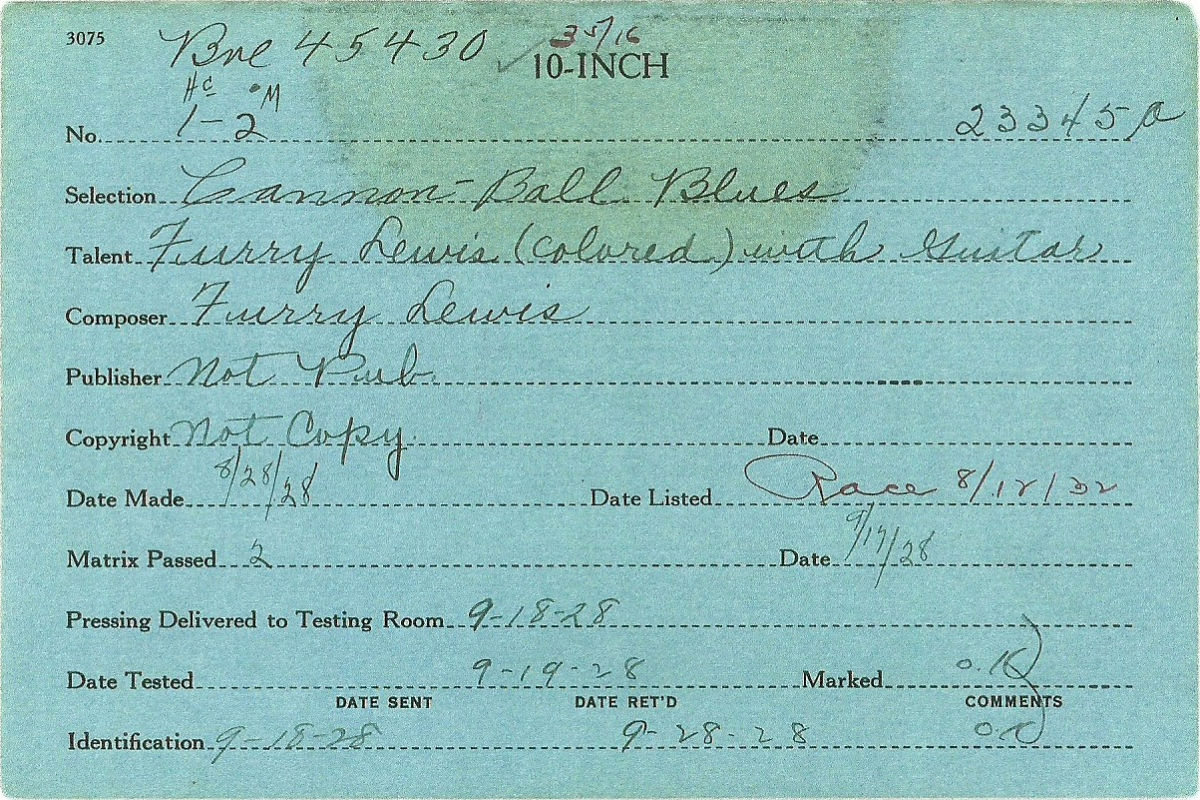 3075 Bve 45430 3 5/16
10-INCH
Hc M
No. 1-2 23345 a
Selection Cannon-Ball Blues
Talent Furry Lewis (colored) with Guitar
Composer Furry Lewis
Publisher Not Pub.
Copyright Not Copy. Date
Date Made 8/28/28 Date Listed Race 8/12/32
Matrix Passed 2 Date 9/17/28
Pressing Delivered to Testing Room 9-18-28
Date Tested 9-19-28 Marked O.K
DATE SENT DATE RET'D COMMENTS
Identification 9-18-28 9-28-28 O.K